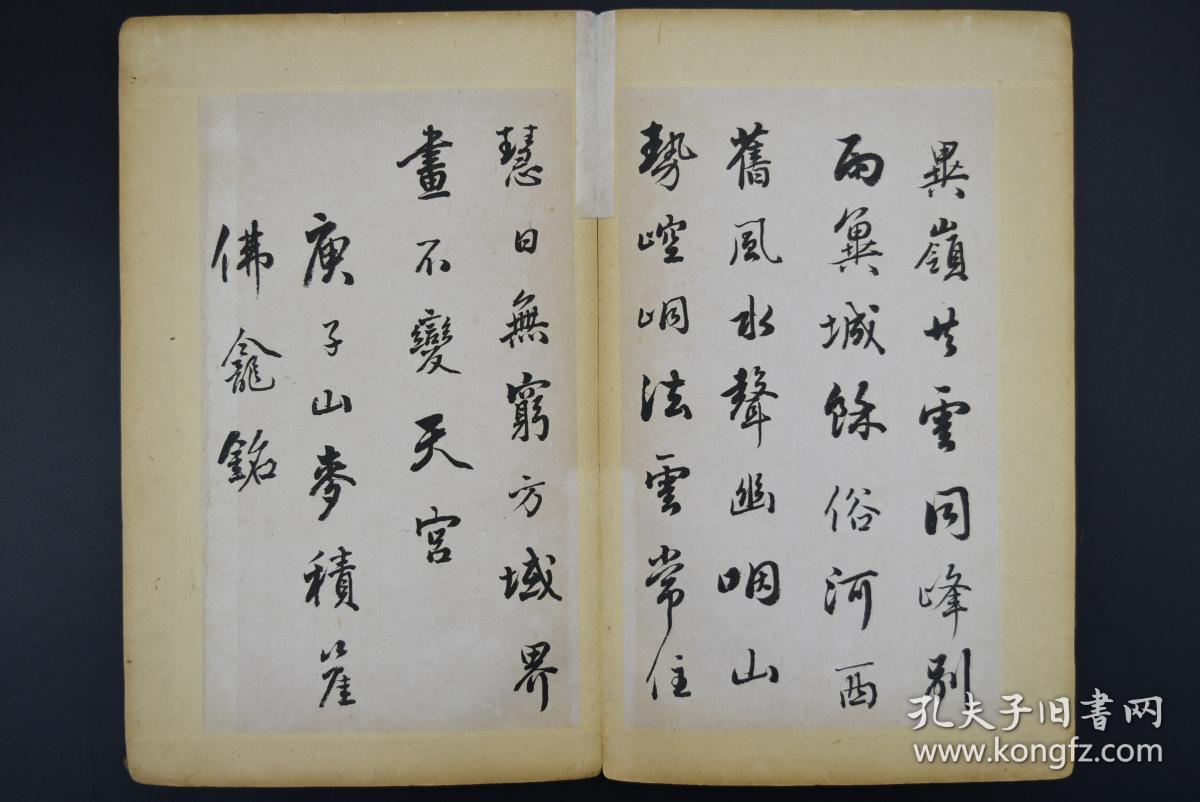 異嶺共雲同峰別
雨冀城餘俗河西
舊風水聲幽咽山
勢崆峒法雲常住
慧日無窮方域界
畫不變天宮
庾子山麥積崖
佛龕銘
孔夫子旧書网
www.kongfz.com